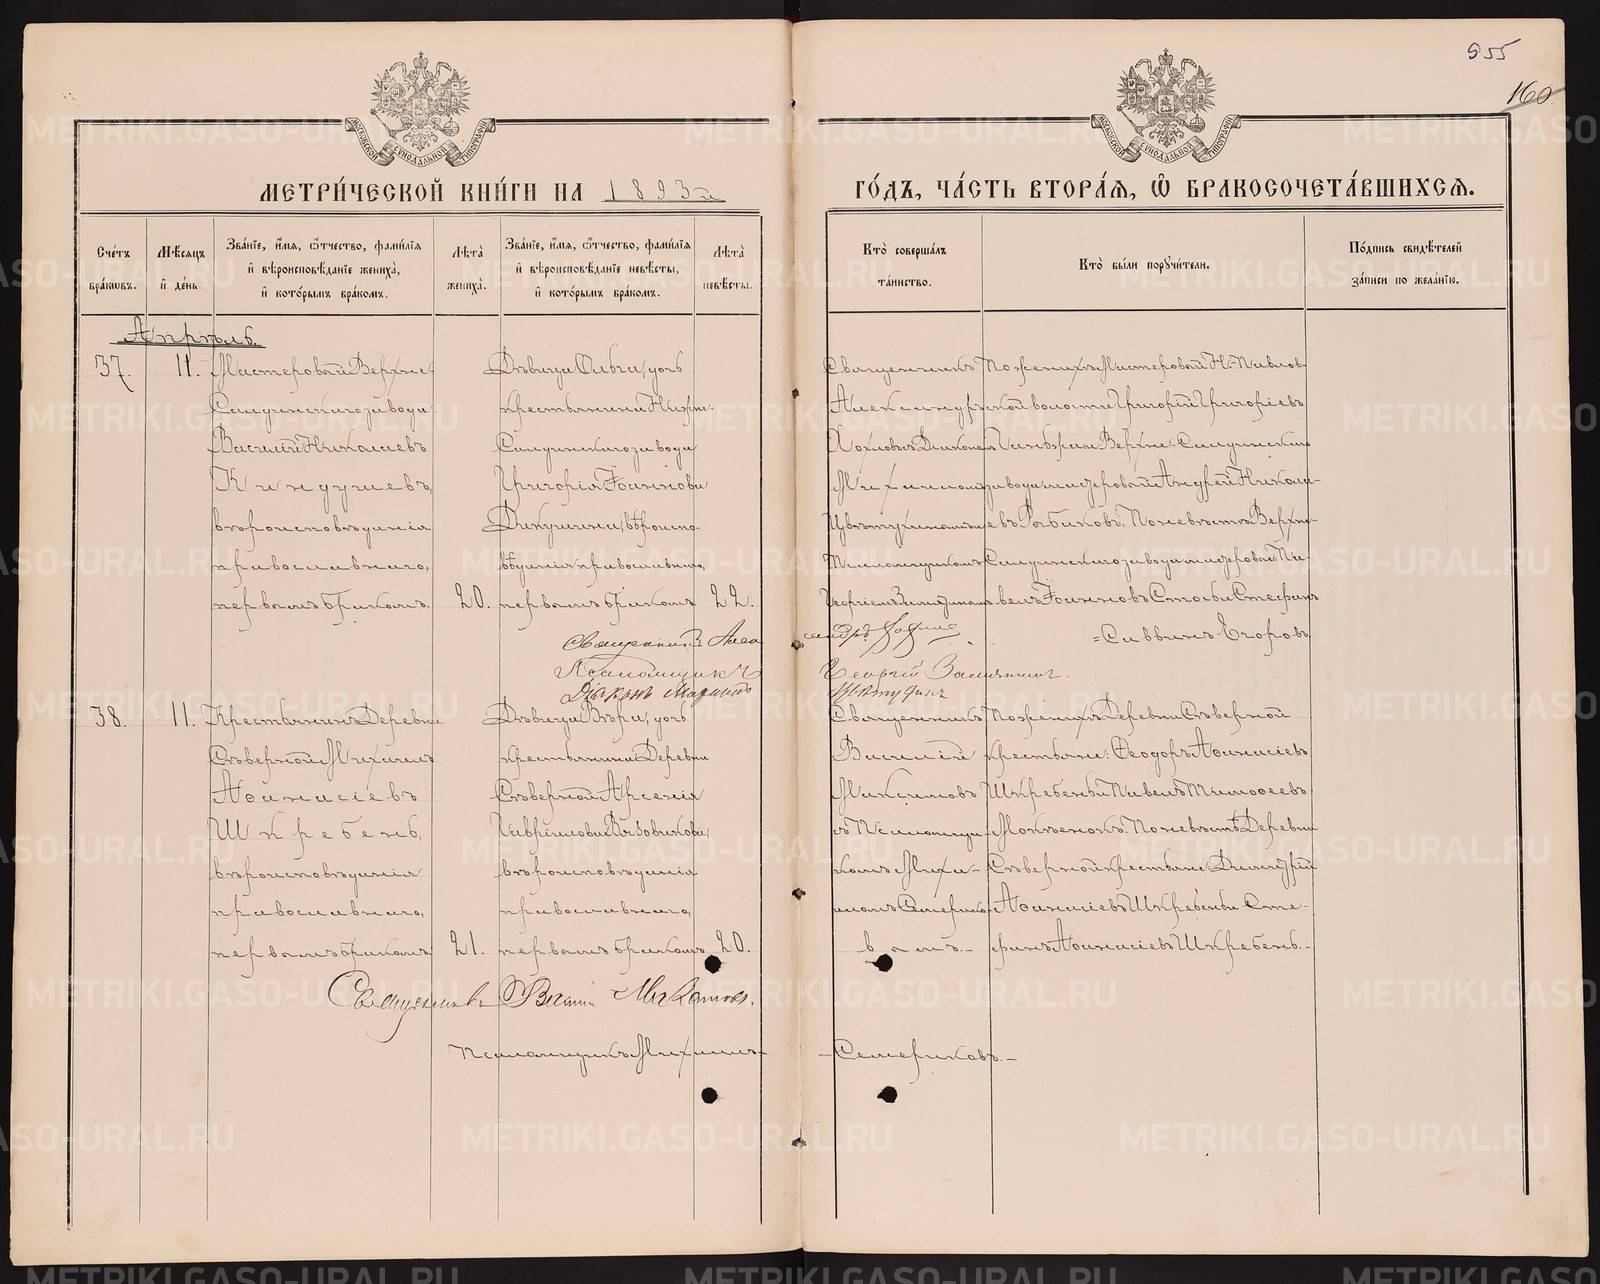 955
160
МЕТРИ́ЧЕСКОЙ КНИ́ГИ НА 1893й
ГО́ДЪ, ЧА́СТЬ ВТОРА́Я, Ѿ БРАКОСОЧЕТА́ВШИХСЯ.
Сче́тъ бра́кѡвъ.
Мѣ́сяцъ и҆ де́нь.
Зва́нїе, и҆́мя, ѻ҆́тчество, фами́лїя
и҆ вѣроисповѣ́данїе жениха̀,
и҆ кото́рымъ бра́комъ.
Лѣ́та жениха̀.
Зва́нїе, и҆́мя, ѻ҆́тчество, фами́лїя
и҆ вѣроисповѣ́данїе невѣ́сты,
и҆ кото́рымъ бра́комъ.
Лѣ́та невѣ́сты.
Кто̀ соверша́лъ
та́инство.
Кто̀ бы́ли порꙋчи́тели.
По́дпись свидѣ́телей
за́писи по жела́нїю.
Апрѣль.
37.
11.
Мастеровой Верхне-
Салдинскаго завода
Василий Николаевъ
вѣроисповѣданія
православнаго,
первымъ бракомъ.
20.
Дѣвица Ольга, дочь
крестьянина Нижне-
Салдинскаго завода
Григорія Іоаннова
Дикушина, вѣроиспо-
вѣданія православнаго,
первымъ бракомъ
22.
Священникъ
Александръ
Хохловъ Діаконъ
Михаилъ
Псаломщикомъ
Георгіемъ
По женихѣ Мастеровой Н.-Павлов-
ской волости Григорій Григоріевъ
Верхне-Салдинскаго
завода мастеровой Андрей Никола-
евъ Рыбаковъ. По невѣстѣ Верхне-
Салдинскаго завода мастеровой Па-
велъ Іоанновъ Стефанъ
Саввинъ Егоровъ
Священникъ
Псаломщикъ
Георгій
Діаконъ
38.
11.
Крестьянинъ Деревни
Сѣверной Михаилъ
Аѳанасіевъ
Шкребень,
вѣроисповѣданія
православнаго,
первымъ бракомъ
21.
Дѣвица Вѣра, дочь
крестьянина Деревни
Сѣверной Арсенія
Гавриілова Вязовикова,
вѣроисповѣданія
православнаго,
первымъ бракомъ
20.
Священникъ
Василий
Максимовъ
съ Псаломщи-
комъ Миха-
иломъ Семерико-
вымъ.-
По женихѣ Деревни Сѣверной
крестьяне: Ѳеодоръ Аѳанасіевъ
Шкребень и Павелъ Тимоѳеевъ
Мокѣенокъ. По невѣстѣ Деревни
Сѣверной крестьяне Димитрій
Аѳанасіевъ Шкребень и Сте-
фанъ Аѳанасіевъ Шкребень.-
Священникъ Василий Максимовъ.
Псаломщикъ Михаилъ-
-Семериковъ.-
METRIKI.GASO-URAL.RU